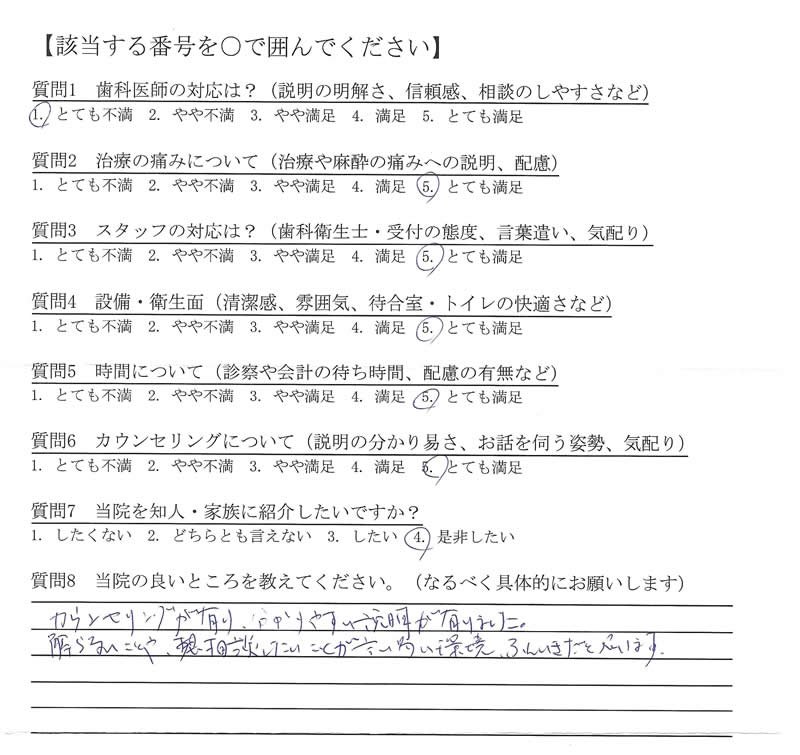 【該当する番号を〇で囲んでください】
質問1　歯科医師の対応は？（説明の明解さ、信頼感、相談のしやすさなど）
1. とても不満　2. やや不満　3. やや満足　4. 満足　5. とても満足
質問2　治療の痛みについて（治療や麻酔の痛みへの説明、配慮）
1. とても不満　2. やや不満　3. やや満足　4. 満足　5. とても満足
質問3　スタッフの対応は？（歯科衛生士・受付の態度、言葉遣い、気配り）
1. とても不満　2. やや不満　3. やや満足　4. 満足　5. とても満足
質問4　設備・衛生面（清潔感、雰囲気、待合室・トイレの快適さなど）
1. とても不満　2. やや不満　3. やや満足　4. 満足　5. とても満足
質問5　時間について（診察や会計の待ち時間、配慮の有無など）
1. とても不満　2. やや不満　3. やや満足　4. 満足　5. とても満足
質問6　カウンセリングについて（説明の分かり易さ、お話を伺う姿勢、気配り）
1. とても不満　2. やや不満　3. やや満足　4. 満足　5. とても満足
質問7　当院を知人・家族に紹介したいですか？
1. したくない　2. どちらとも言えない　3. したい　4. 是非したい
質問8　当院の良いところを教えてください。（なるべく具体的にお願いします）
カウンセリングが有り、分かりやすい説明が有りました。
解らないことや、相談したいことが言い易い環境、ふんいきだと思います。